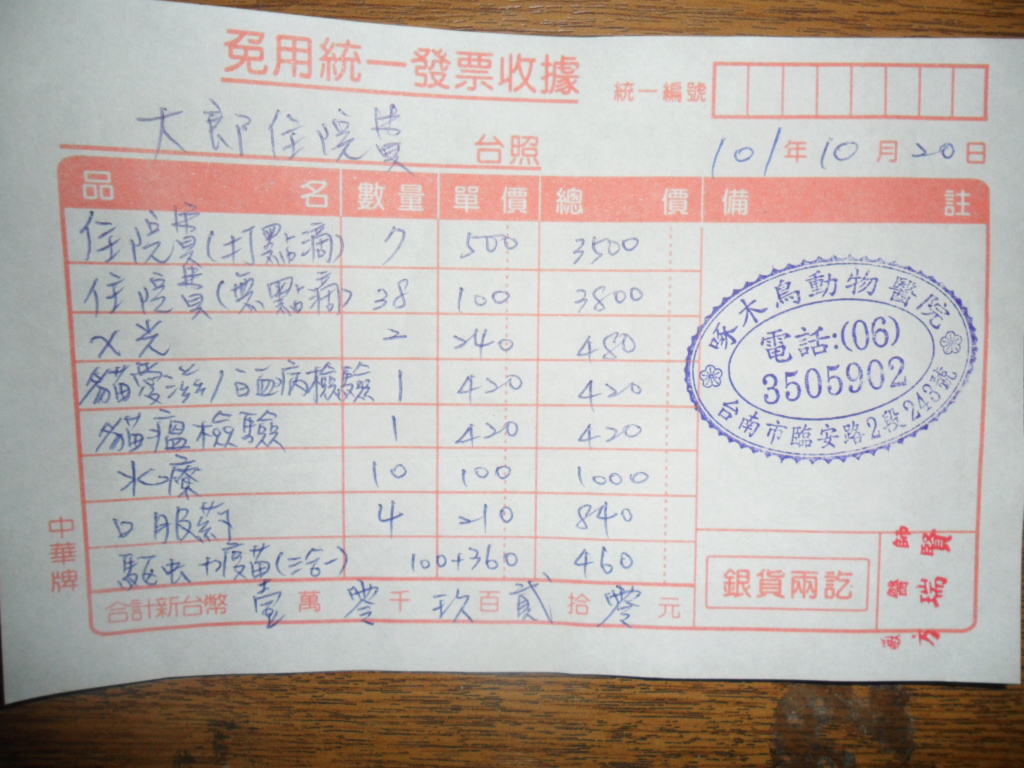 免用統一發票收據
統一編號
太郎住院費 台照
101年10月20日
品名 數量 單價 總價 備註
住院費(打點滴) 7 500 3500
住院費(要點滴) 38 100 3800
X光 2 240 480
貓愛滋/白血病檢驗 1 420 420
貓瘟檢驗 1 420 420
水療 10 100 1000
口服葯 4 210 840
驅虫+疫苗(三合一) 100+360 460
合計新台幣 壹萬零千玖百貳拾零元
啄木鳥動物醫院
電話:(06)
3505902
台南市臨安路2段243號
銀貨兩訖
中華牌
醫師
瑞賢